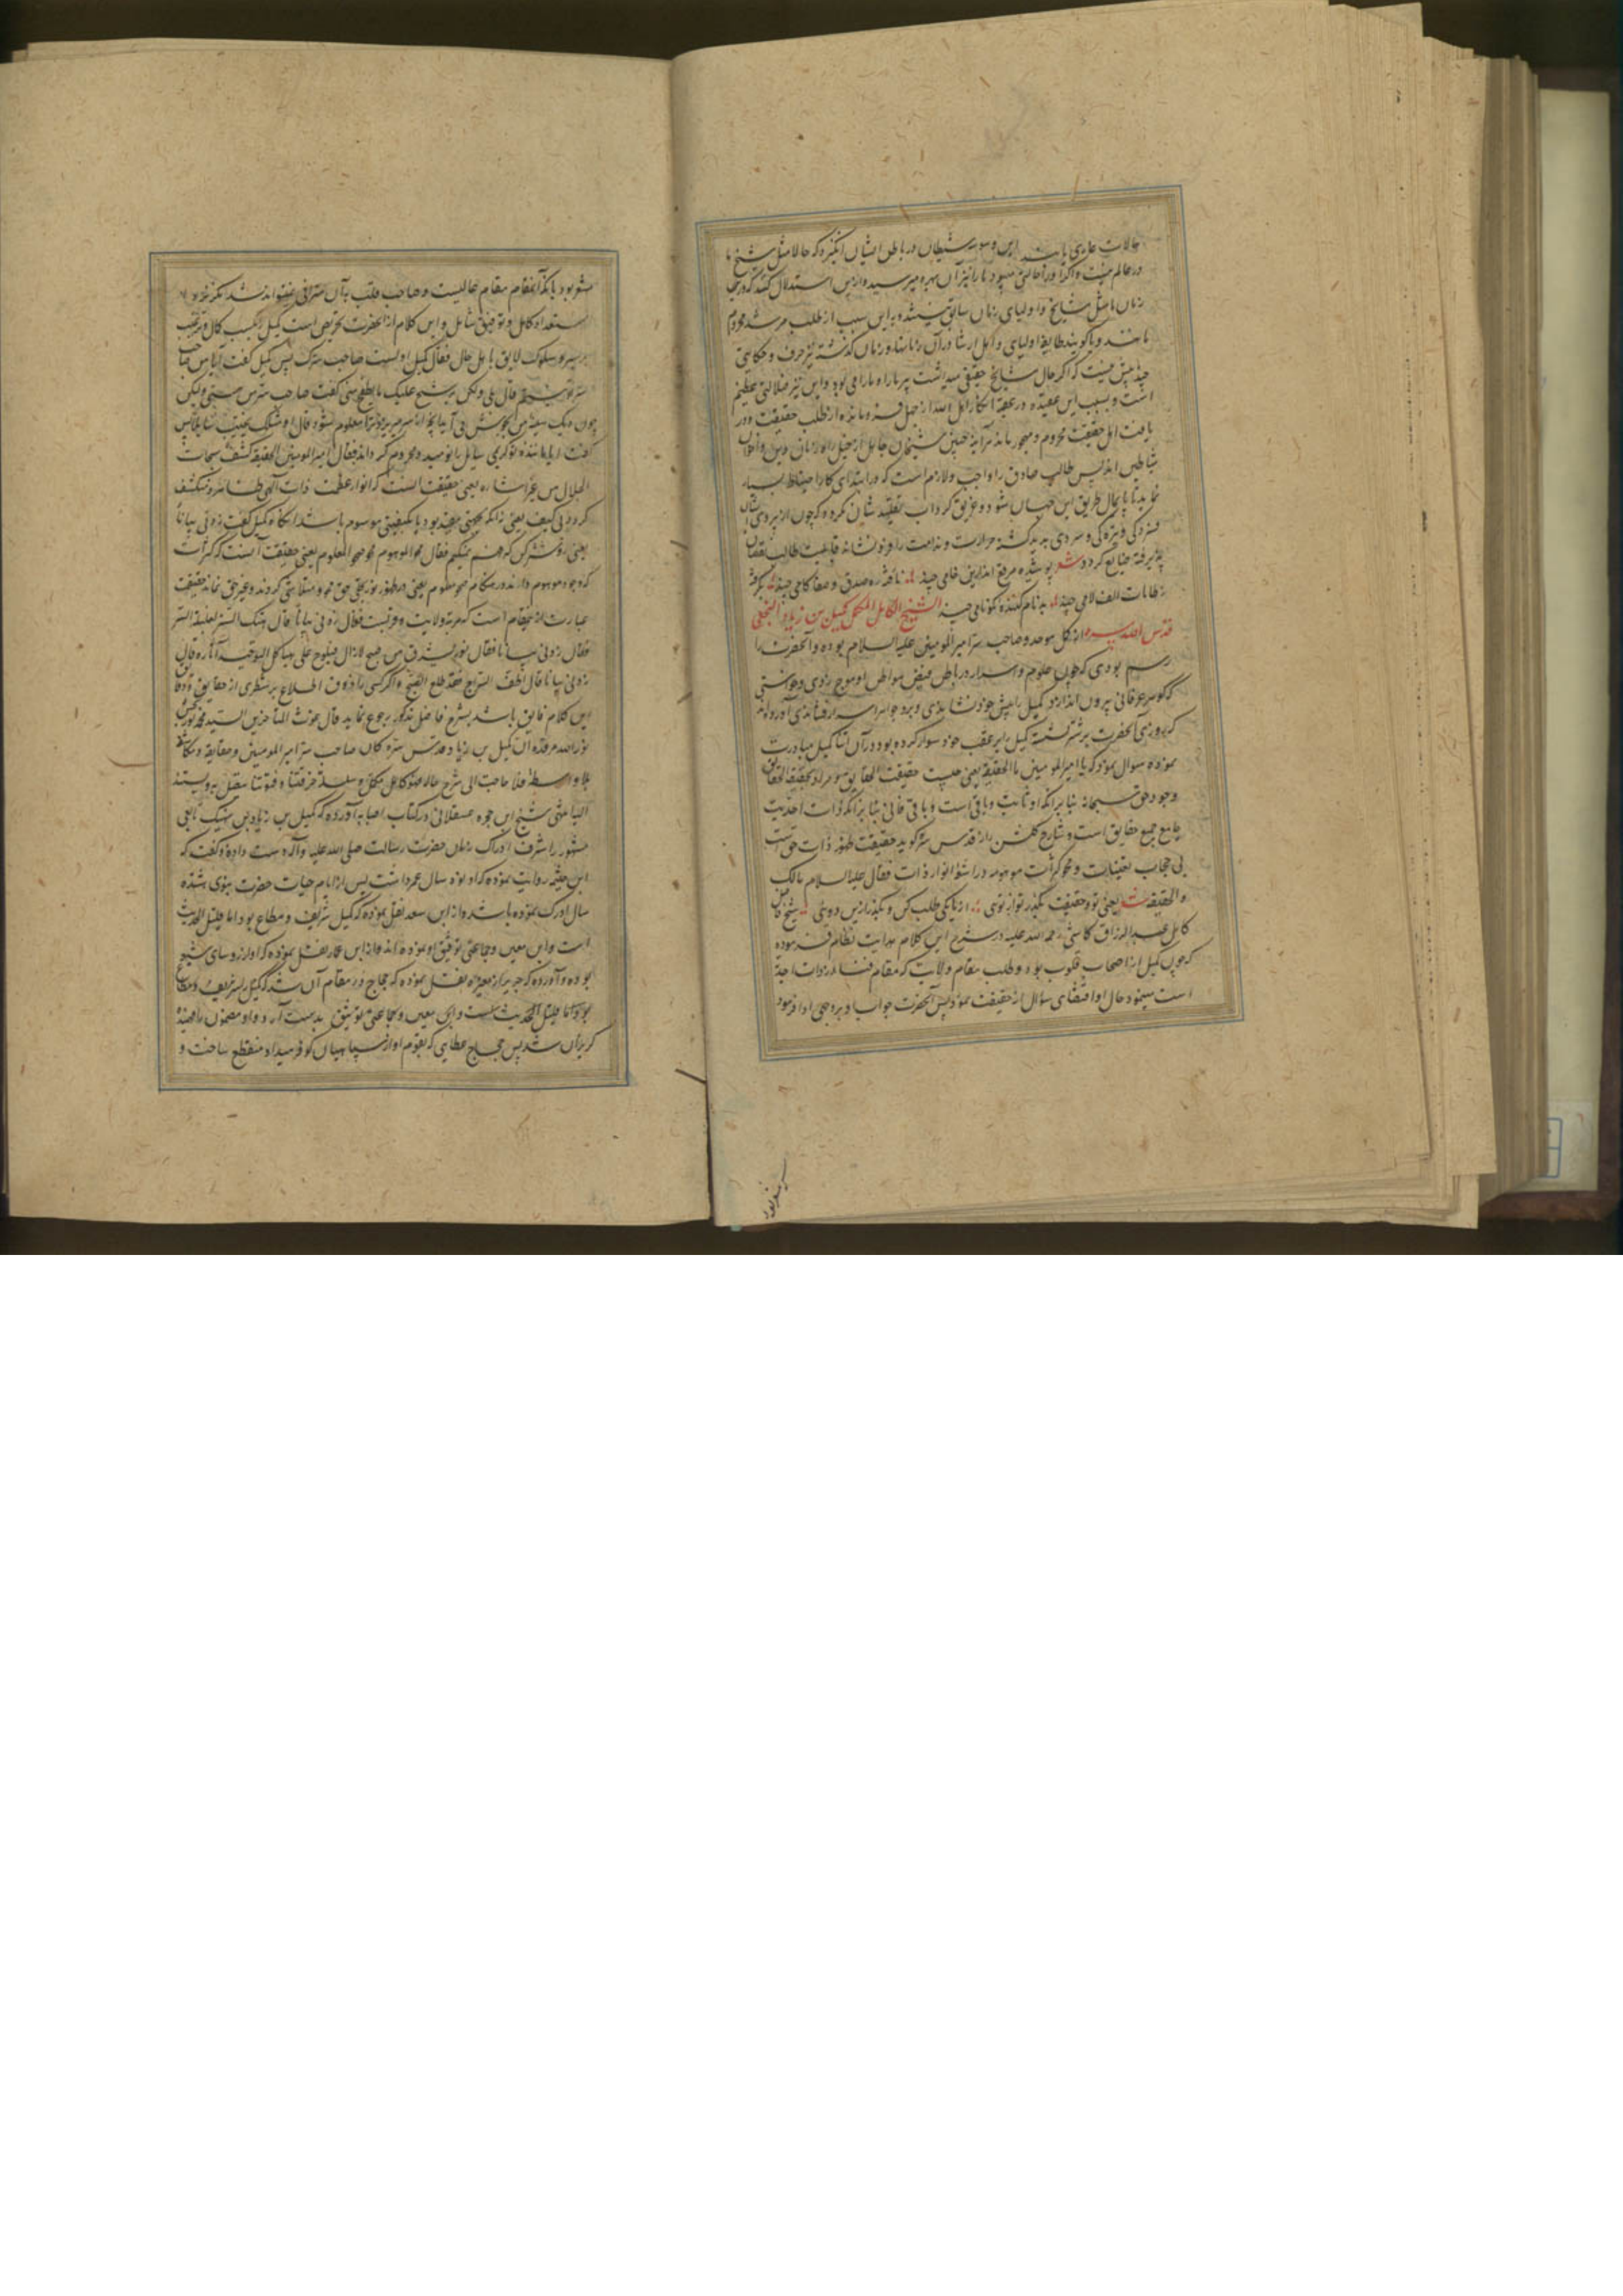 حالات عاری باشند این وسوسه شیطان در باطن ایشان انگیزد که حالا مثل شیخ ما
در عالم نیست و اگر او را حالتی میبود ما را نیز از آن بهره میرسید و ازین استدلال کنند که درین
زمان ما مثل مشایخ و اولیای زمان سابق نیستند و به این سبب از طلب مرشد محروم
باشند و یا گویند طایفه اولیای و اهل ارشاد در آن زمانها و زمان گذشته نیز حرف و حکایتی
چند بیش نیست که اگر حال مشایخ حقیقی میداشت پیر ما را هم میبود و این نیز ضلالتی عظیم
است و بسبب این عقیده در عقبه انکار اهل الله از جهل فرو مانده از طلب حقیقت و در
یافت اهل حقیقت محروم و مهجور ماند هرآینه چنین شیخان جاهل از خیل راه زنان دین و اخوان
شیاطین اند پس طالب صادق را واجب و لازم است که در ابتدای کار احتیاط بسیار
نماید تا پایمال طریق این جهال نشود و غریق گرداب تقلید شان نگردد که چون از پیروی شان
فسردگی و تیرگی و سردی به بدگشته حرارت و ندامت را و نوشانه قابلیت طالب نقصان
پذیرفته ضایع گردد شعر پوشیده مرقع اندازین خامی چند نارفته ره صدق و صفا گامی چند بگرفته
ز طامات الف لامی چند بدنام کننده نکونامی چند الشیخ الکامل المکمل کمیل بن زیاد النخعی
قدس الله سره از کمل موحد و صاحب سر امیر المومنین علیه السلام بوده و آنحضرت را
رسم بودی که چون علوم و اسرار در باطن فیض مواطن او موج زدی و خواستی
که گوهر عرفانی بیرون اندازد کمیل را پیش خود نشاندی و برو جواهر اسرار فشاندی آورده اند
که روزی آنحضرت بر شتر نشسته کمیل را بر عقب خود سوار کرده بود در آن اثنا کمیل مبادرت
نموده سوال نمود که یا امیر المومنین ما الحقیقه یعنی چیست حقیقت الحقایق و مراد بحقیقه الحقایق
وجود حق سبحانه بنا برانکه او ثابت و باقی است و باقی فانی بنا برانکه ذات احدیت
جامع جمیع حقایق است و شارح گلشن راز قدس سره گوید حقیقت ظهور ذات حق است
بی حجاب تعینات و محو کثرات موهومه در اشعه انوار ذات فقال علیه السلام مالک
و الحقیقه یعنی تو و حقیقت بگذر تو از توی از یابکی طلب کن و بگذر ازین دوئی شیخ فاضل
کامل عبد الرزاق کاشی رحمه الله علیه در شرح این کلام هدایت نظام فرموده
که چون کمیل از اصحاب قلوب بود و طلب مقام ولایت که مقام فنا در ذات احدیه
است مینمود حال او اقتضای سوال از حقیقت نمود پس آنحضرت جواب او بروجهی ادا فرمود
مشعر بود بانکه آنمقام مقام عالیست و صاحب قلب به آن مترقی نتواند شد مگر نزد
استعداد کامل و توفیق شامل و این کلام از آنحضرت تحریص است کمیل را بکسب کمال و ترغیب
بر سیر و سلوک لایق باهل حال فقال کمیل اولست صاحب سرک پس کمیل گفت آیا من صاحب
سر تو نیستم قال بلی ولکن یرشح علیک ما یطفح منی گفت صاحب سر من هستی ولیکن
چون دیگ سینه من بجوش می آید انچه از سر میریزد ترا معلوم شود قال او مثلک یخیب سایلا پس
گفت آیا مانند تو کریمی سایل را نومید و محروم گرداند فقال امیر المومنین الحقیقه کشف سبحات
الجلال من غیر اشاره یعنی حقیقت آنست که انوار عظمت ذات الهی ظاهر و منکشف
گردد بی کیف یعنی ز انکه بجهتی مقید بود یا بکیفیتی موسوم باشد انگاه کمیل گفت زدنی بیانا
یعنی روشنتر کن که فهم نمیکنم فقال محو الموهوم و صحو المعلوم یعنی حقیقت آنست که کثرات
که وجود موهوم دارند در مقام صحو معلوم یعنی در ظهور نور تجلی حق محو و متلاشی گردند و غیر حق نماند حقیقت
عبارت از نمقام است که مرتبه ولایت و قربت فقال زدنی بیانا قال هتک الستر لغلبة السر
فقال زدنی بیانا فقال نور یشرق من صبح الازال فیلوح علی هیاکل التوحید آثاره قال
زدنی بیانا قال اطف السراج فقد طلع الصبح و اگر کسی را ذوق اطلاع بر شطری از حقایق و دقایق
این کلام فایق باشد بشرح فاضل مذکور رجوع نماید قال غوث المتاخرین السید محمد نوربخش
نور الله مرقده ان کمیل بن زیاد قدس سره کان صاحب سر امیر المومنین و حقایقه و مکاشفه
بلا واسطه فلا حاجت الی شرح حاله فهو کامل مکمل و سلسله خرقتنا و فتوتنا متصل به و یستند
الیه انتهی شیخ ابن حجر عسقلانی در کتاب اصابه آورده که کمیل بن زیاد بن نهیک تابعی
مشهور را شرف ادراک زمان حضرت رسالت صلی الله علیه و آله دست داده و گفت که
ابن خیثمه روایت نموده که او نود سال عمر داشت پس از ایام حیات حضرت نبوی هشتده
سال ادراک نموده باشد و از ابن سعد نقل نموده که کمیل شریف و مطاع بود اما قلیل الحدیث
است و ابن معین و جماعتی توثیق او نموده اند و از ابن عمار نقل نموده که او از روسای شیعه
بوده و آورده که جریر از مغیره نقل نموده که حجاج در مقام آن شد که کمیل شریف و مطاع
بود اما قلیل الحدیث است و ابن معین و جماعتی توثیق بدست آرد و او مضمون را فهمیده
گریزان شد پس حجاج عطایی که بقوم او از سپاهیان کوفه میداد منقطع ساخت و